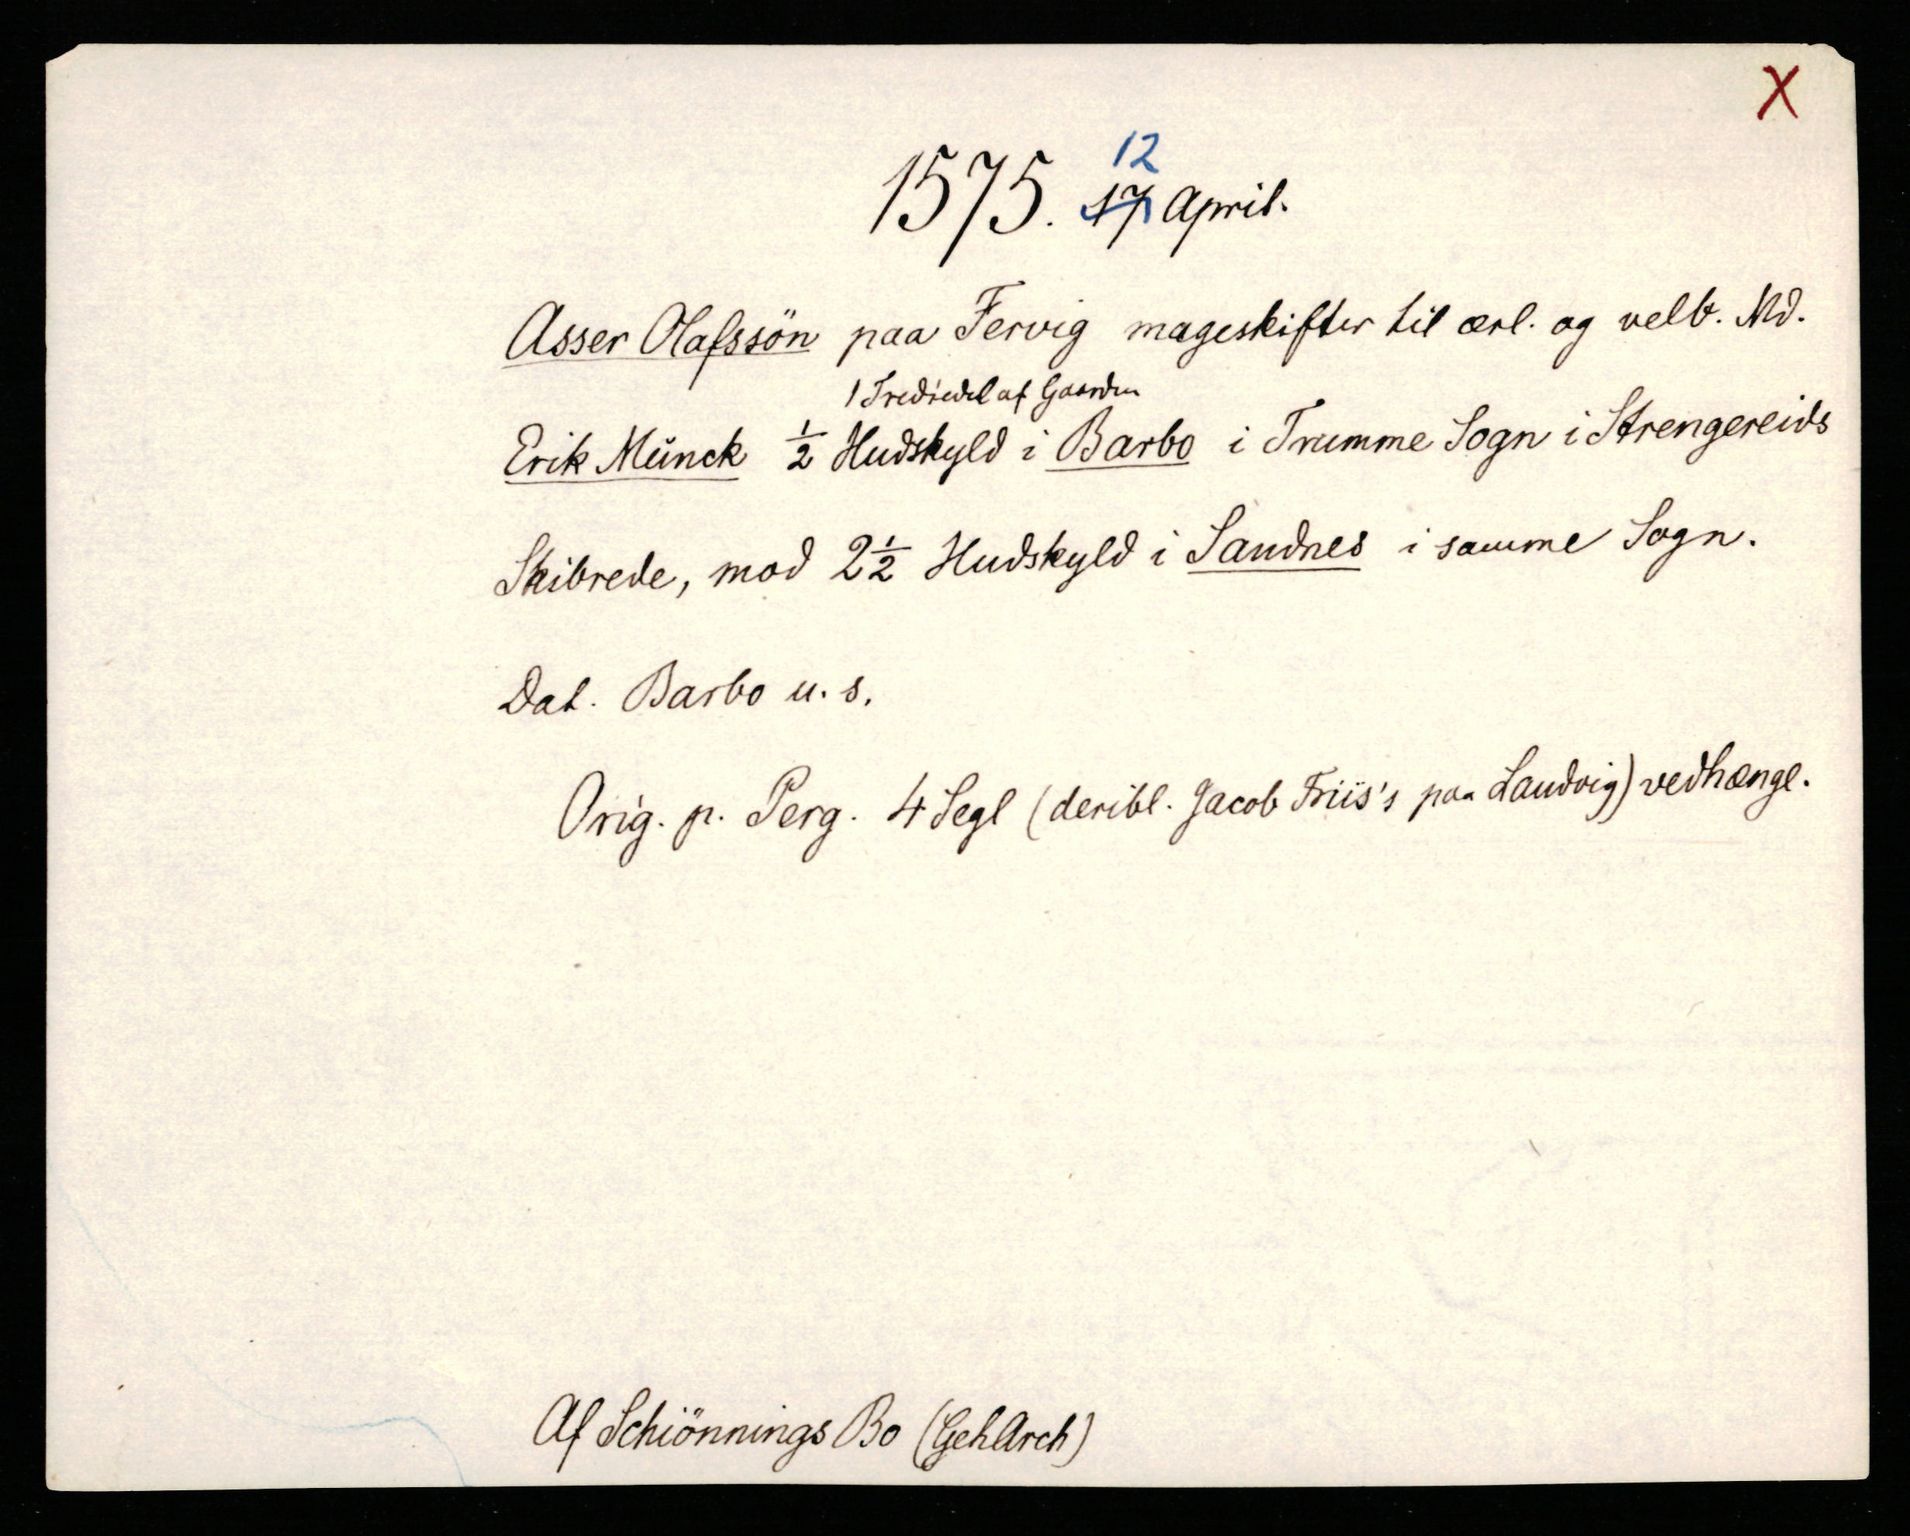 X
12
1575. 17 April.
Asser Olafssön paa Fervig mageskifter til ærl. og velb. Md.
1 Trediedel af Gaarden
Erik Münck ½ Hudskyld i Barbo i Trumme Sogn i Strengereids
Skibrede, mod 2½ Hudskyld i Sandnes i samme Sogn.
Dat. Barbo u. s.
Orig. p. Perg. 4 Segl (deribl. Jacob Friis's paa Landvig) vedhænge.
Af Schiönnings Bo (GehArch)